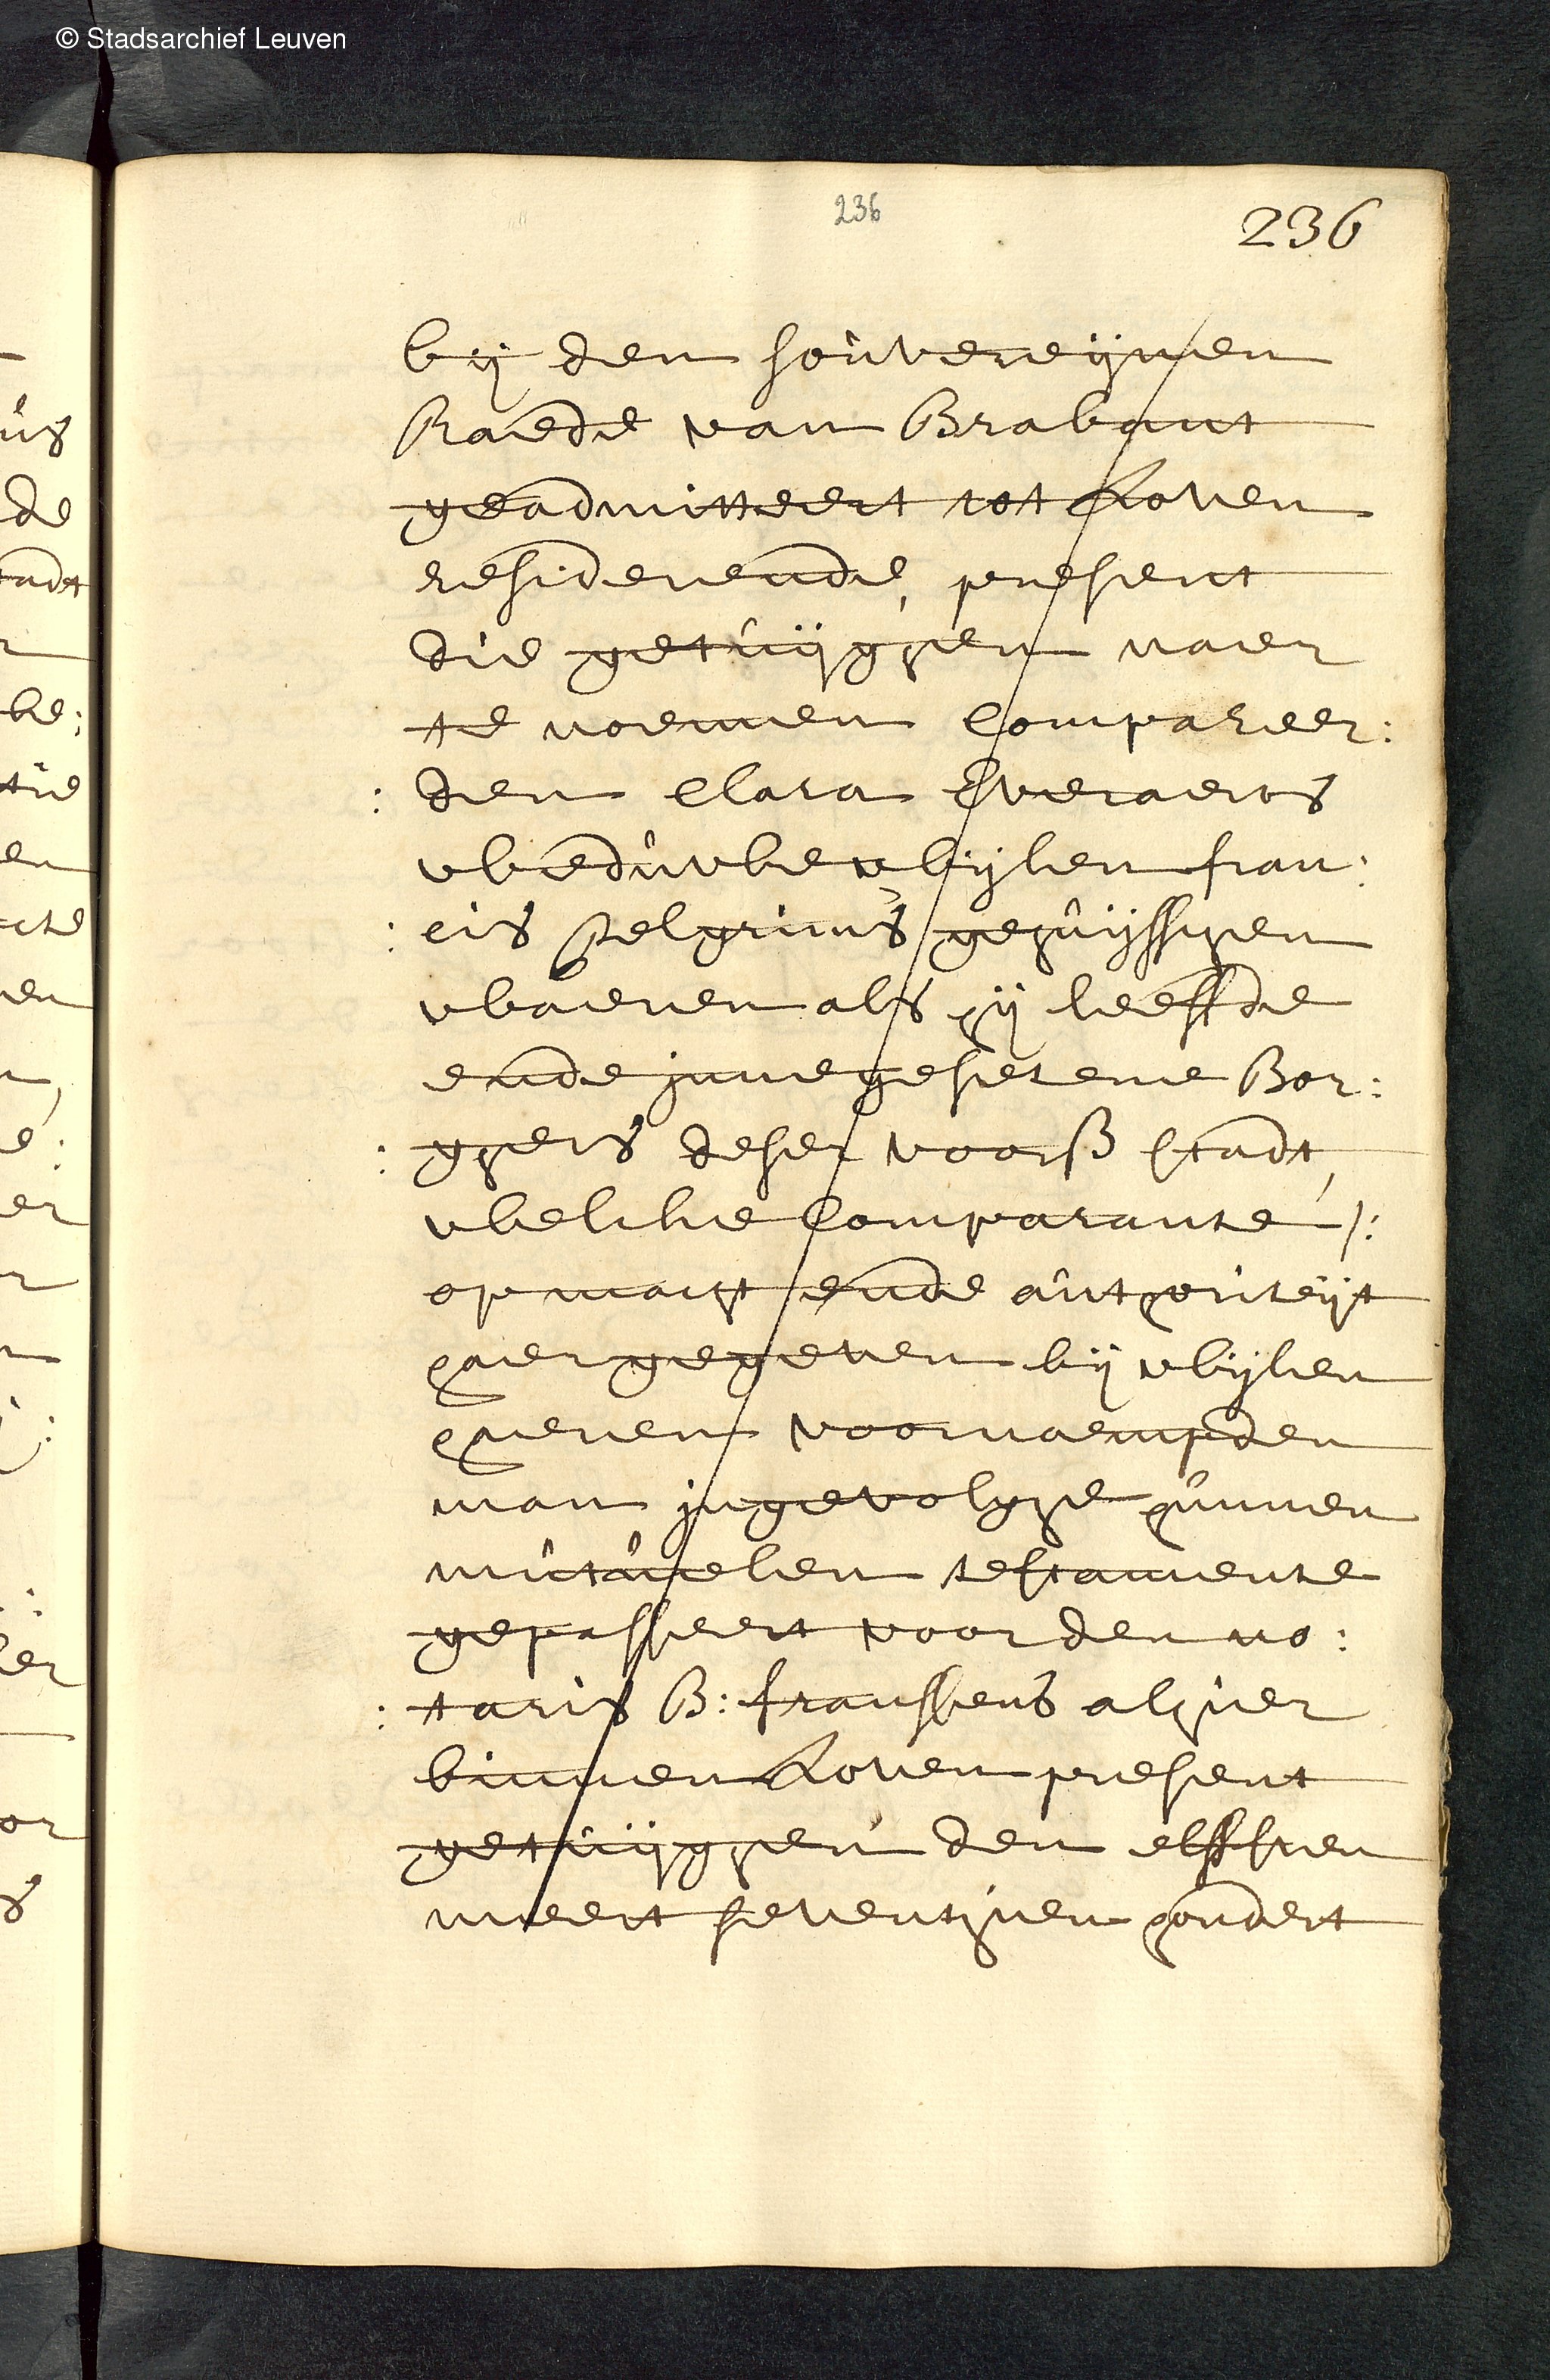 © Stadsarchief Leuven
236
236
bij den souvereijnen
Raede van Brabant
geadmitteert tot Loven
residerende, present
die getuijghen naer
te noemen Compareer:
: den Clara Everaerts
weduwe wijlen fran:
: cis Pelgrims gehuijsschen
waeren als hij leeffde
ende innegesetene Bor:
: ghers deser voors Stadt,
welcke Comparante /:
op macht ende authoriteijt
haer gegeven bij wijlen
hueren voornaempden
man ingevolghe hunnen
mutuelen testamente
gepasseert voor den no:
: taris B: franssens alhier
binnen Loven present
getuijghen den elffsten
meert seventhien hondert